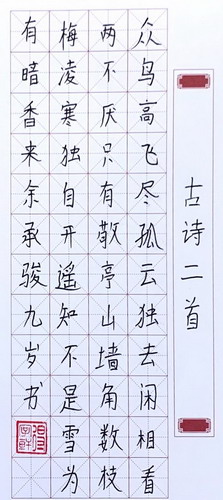 古诗二首
众鸟高飞尽孤云独去闲相看
两不厌只有敬亭山墙角数枝
梅凌寒独自开遥知不是雪为
有暗香来余承骏九岁书